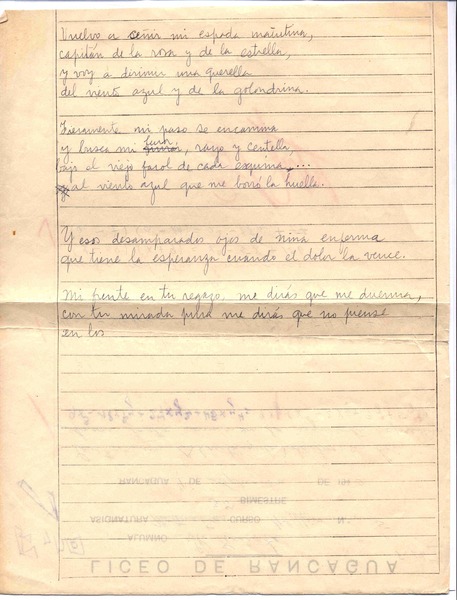 Vuelvo a ceñir mi espada matutina,
capitán de la rosa y de la estrella,
y voy a dirimir una querella
del viento azul y de la golondrina.
Fieramente mi paso se encamina
y busca mi furor, rayo y centella
bajo el viejo farol de cada esquina, ...
y al viento azul que me borró la huella.
Y esos desamparados ojos de niña enferma
que tiene la esperanza cuando el dolor la vence.
Mi frente en tu regazo, me dirás que me duerma,
con tu mirada pura me dirás que no piense
en los
RANCAGUA DE DE 19
BIMESTRE
ASIGNATURA CURSO N.
ALUMNO
LICEO DE RANCAGUA